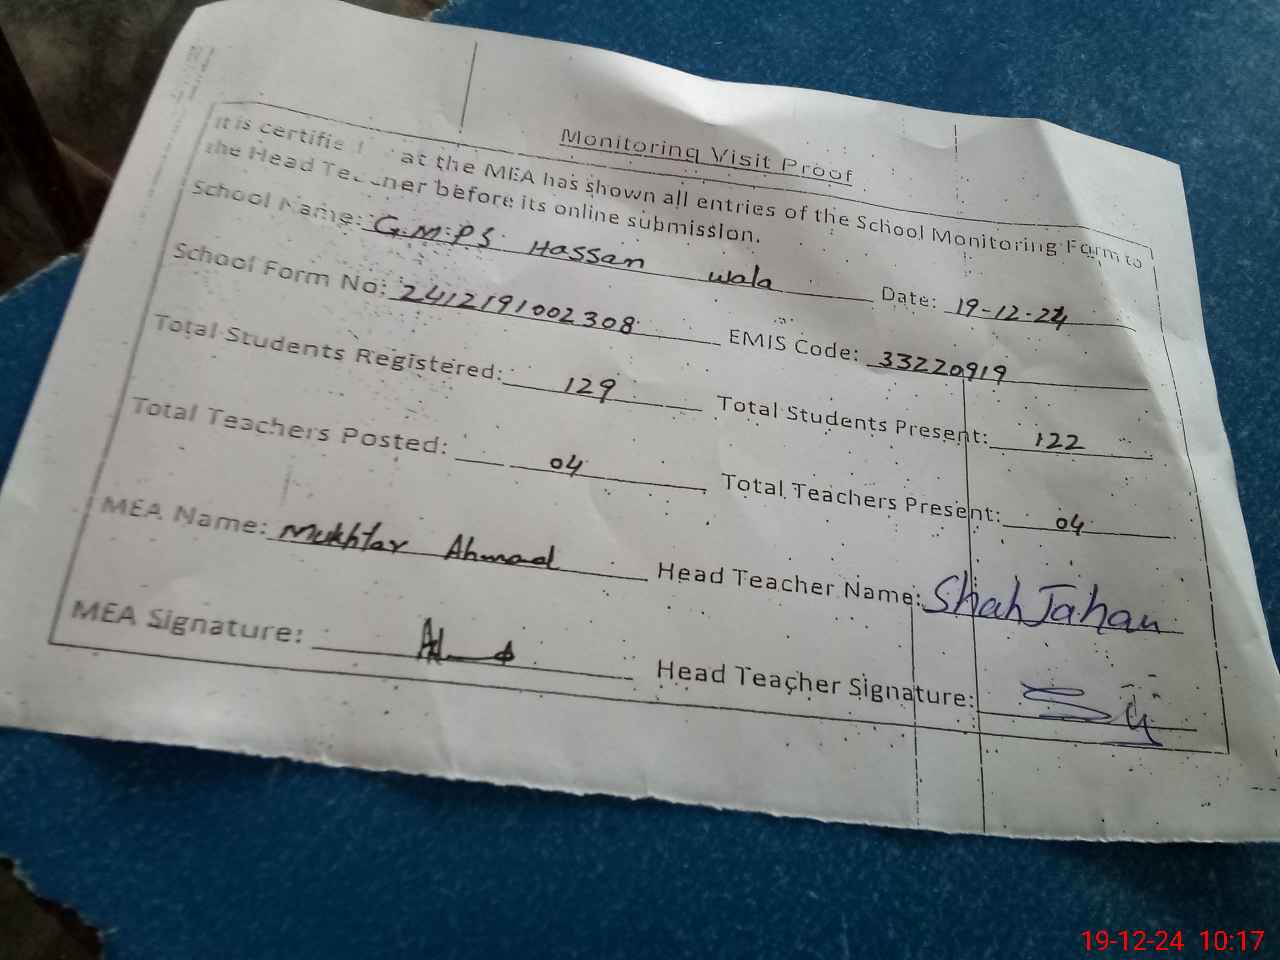 Monitoring Visit Proof
It is certifie at the MEA has shown all entries of the School Monitoring Form to
the Head Teacher before its online submission.
School Name: G.M.P.S Hassan wala Date: 19-12-24
School Form No: 2412191002308 EMIS Code: 33220919
Total Students Registered: 129 Total Students Present: 122
Total Teachers Posted: 04 Total Teachers Present: 04
MEA Name: Mukhtar Ahmad Head Teacher Name: Shah Jahan
MEA Signature: Head Teacher Signature:
19-12-24 10:17